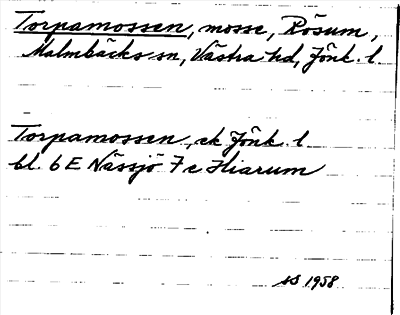 Torpamossen, mosse, Rösum,
Malmbäcks sn, Västra hd, Jönk. l.
Torpamossen, ek Jönk. l
bl. 6 E Nässjö 7 c Hiarum
SB 1958